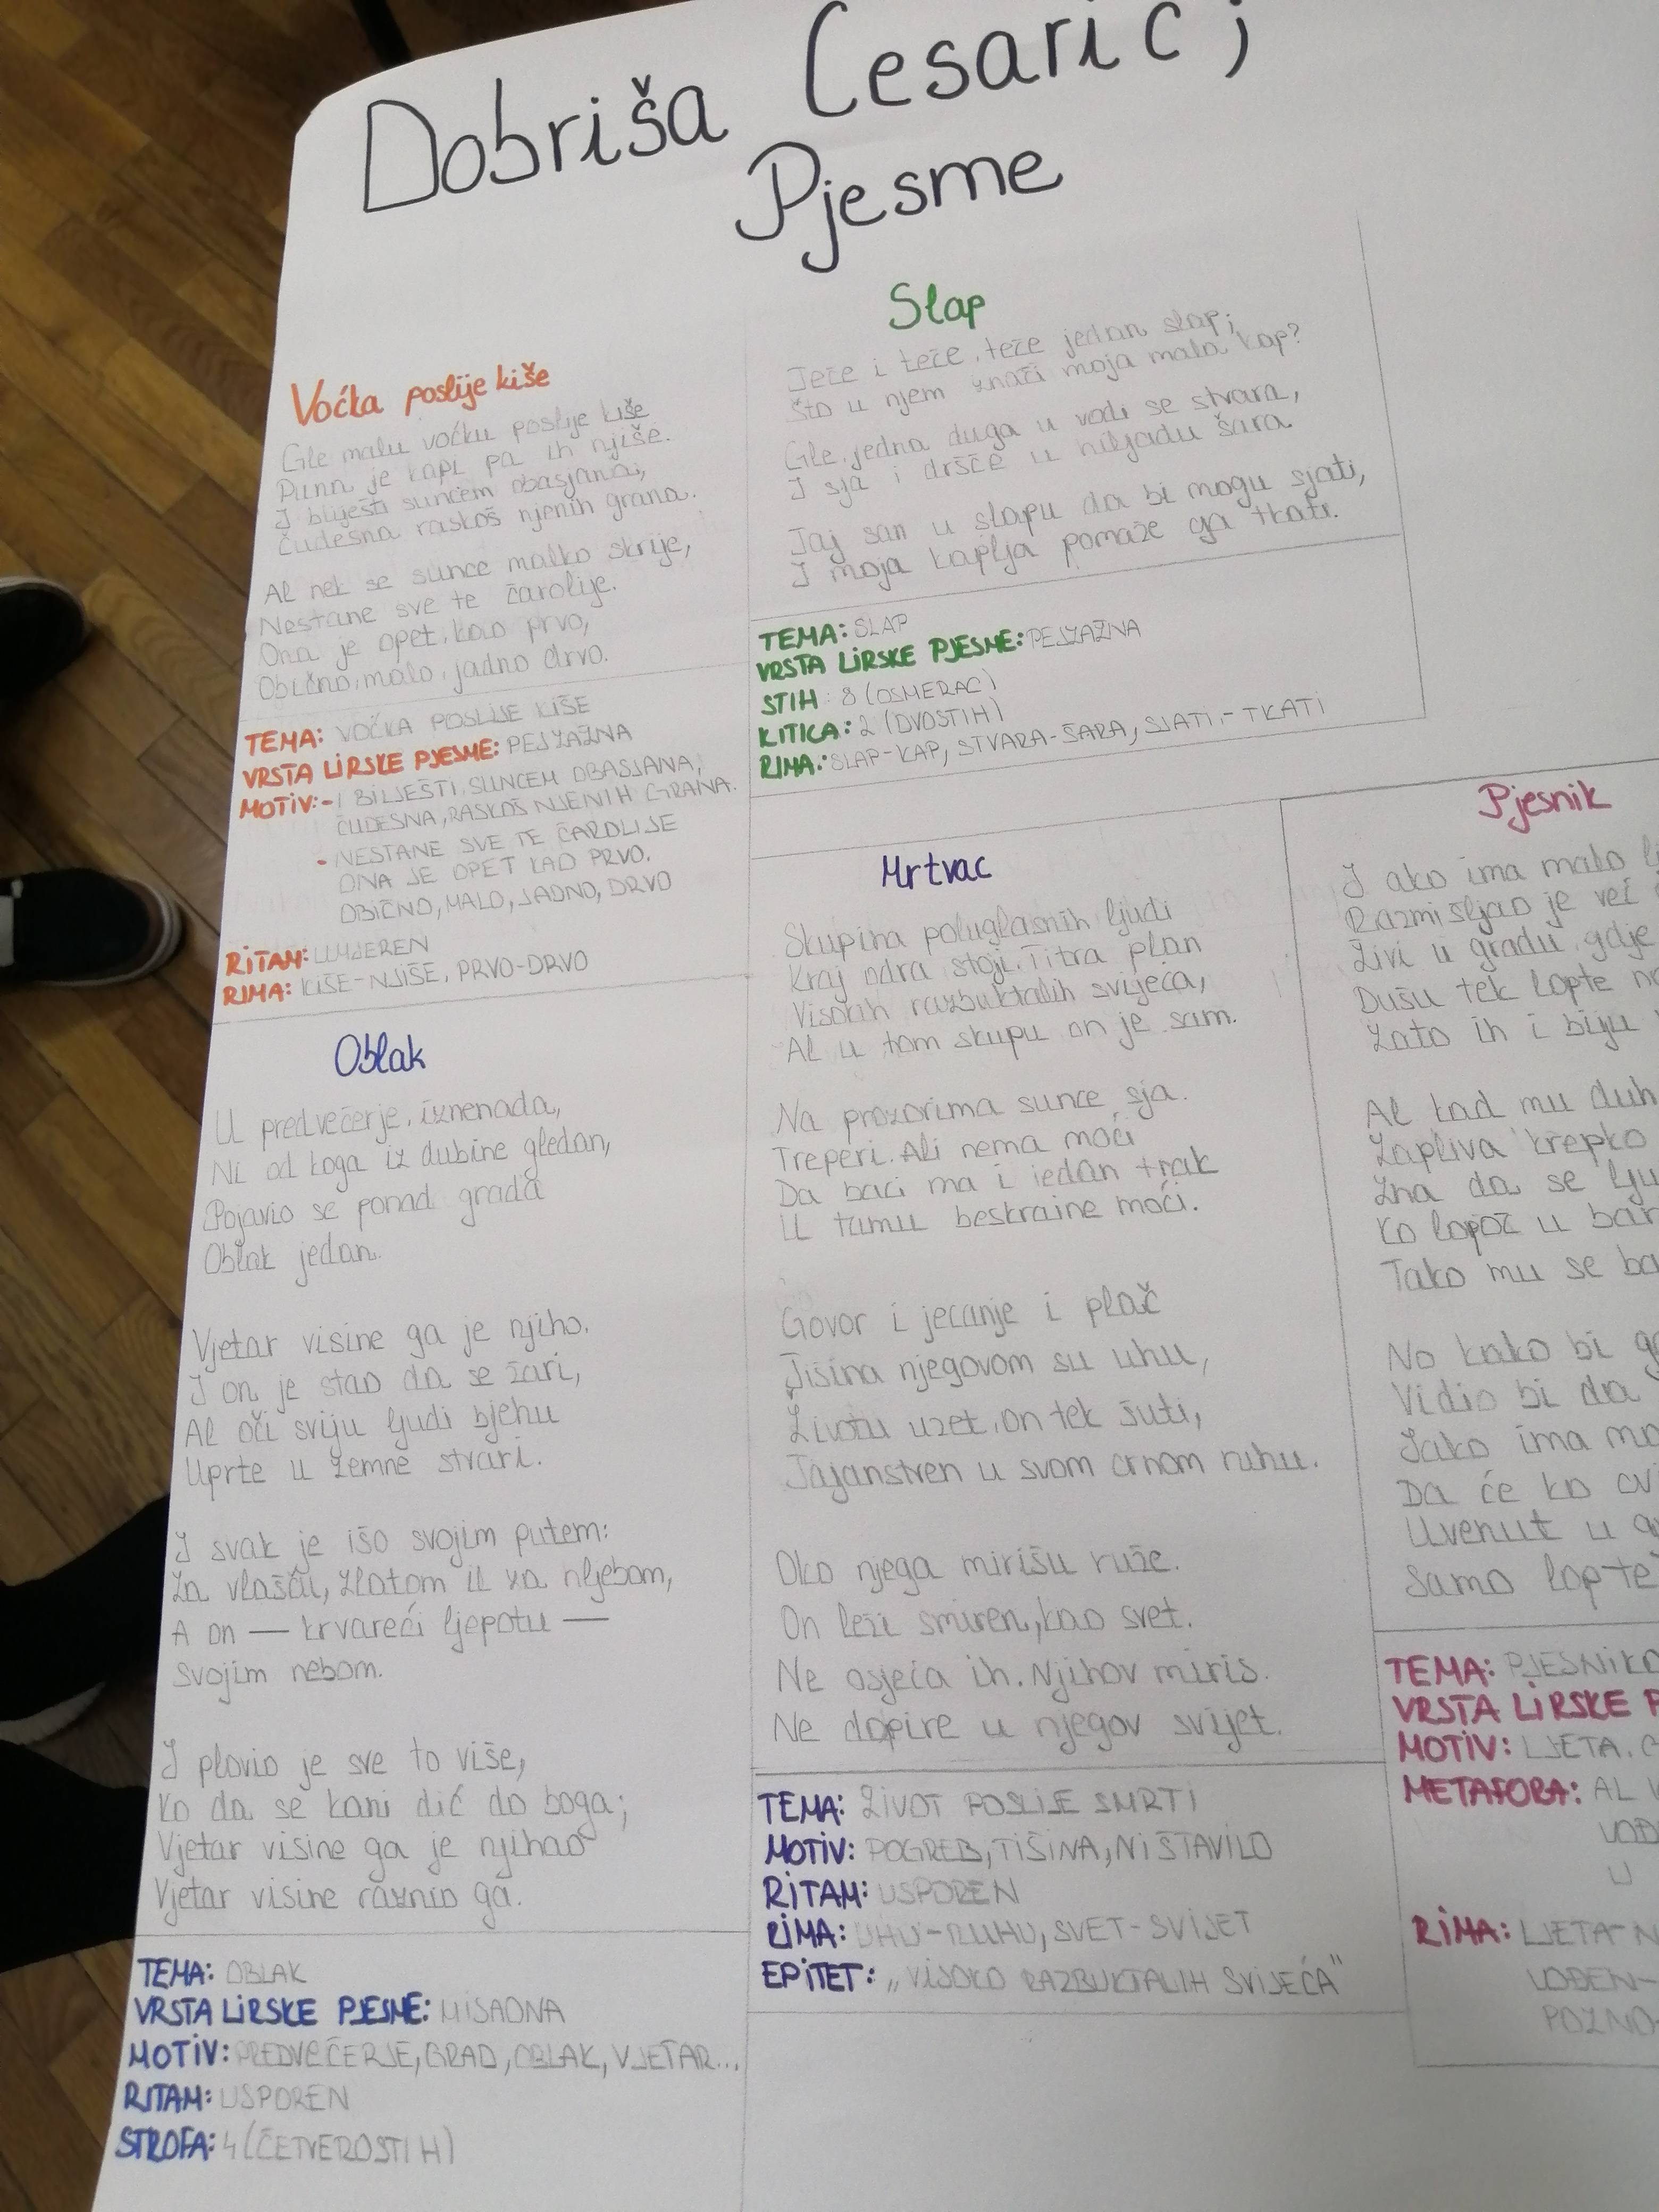 Dobriša Cesarić ;
Pjesme
Voćka poslije kiše
Gle malu voćku poslije kiše
Puna je kapi pa ih njiše.
I bliješti suncem obasjana,
Čudesna raskoš njenih grana.
Al nek se sunce malko skrije,
Nestane sve te čarolije.
Ona je opet, kao prvo,
Obično, malo, jadno drvo.
TEMA: VOČKA POSLIJE KIŠE
VRSTA LIRSKE PJESME: PEJZAŽNA
MOTIV: - I BILJEŠTI, SUNCEM OBASJANA,
ČUDESNA, RASKOŠ NJENIH GRANA.
- NESTANE SVE TE ČAROLIJE
ONA JE OPET KAO PRVO.
OBIČNO, MALO, JADNO, DRVO
RITAM: UMJEREN
RIMA: KIŠE-NJIŠE, PRVO-DRVO
Slap
Teče i teče, teče jedan slap;
Što u njem znači moja mala kap?
Gle, jedna duga u vodi se stvara,
I sja i dršće u hiljadu šara.
Taj san u slapu da bi mogu sjati,
I moja kaplja pomaže ga tkati.
TEMA: SLAP
VRSTA LIRSKE PJESME: PEJZAŽNA
STIH: 8 (OSMERAC)
KITICA: 2 (DVOSTIH)
RIMA: SLAP-KAP, STVARA-ŠARA, SJATI-TKATI
Oblak
U predvečerje, iznenada,
Ni od koga iz dubine gledan,
Pojavio se ponad grada
Oblak jedan.
Vjetar visine ga je njiho.
I on je stao da se žari,
Al oči sviju ljudi bjehu
Uprte u zemne stvari.
I svak je išo svojim putem:
Za vlašću, zlatom il za hljebom,
A on — krvareći ljepotu —
Svojim nebom.
I plovio je sve to više,
Ko da se kani dić do boga;
Vjetar visine ga je njihao
Vjetar visine raznio ga.
TEMA: OBLAK
VRSTA LIRSKE PJESME: MISAONA
MOTIV: PREDVEČERJE, GRAD, OBLAK, VJETAR...
RITAM: USPOREN
STROFA: 4 (ČETVEROSTIH)
Mrtvac
Skupina poluglasnih ljudi
Kraj odra stoji. Titra plan
Visokih razbuktalih svijeća,
Al u tom skupu on je sam.
Na prozorima sunce sja.
Treperi. Ali nema moći
Da baci ma i jedan trak
U tamu beskraine moći.
Govor i jecanje i plač
Tišina njegovom su uhu,
Životu uzet, on tek šuti,
Tajanstven u svom crnom ruhu.
Oko njega mirišu ruže.
On leži smiren, kao svet.
Ne osjeća ih. Njihov miris.
Ne dopire u njegov svijet.
TEMA: ŽIVOT POSLIJE SMRTI
MOTIV: POGREB, TIŠINA, NIŠTAVILO
RITAM: USPOREN
RIMA: UHU-RUHU, SVET-SVIJET
EPITET: „VISOKO RAZBUKTALIH SVIJEĆA"
Pjesnik
I ako ima malo
Razmišljao je već
Živi u gradu, gdje
Dušu tek lopte
Zato ih i biju
Al kad mu duh
Zapliva krepko
Zna da se
Ko lopoč u
Tako mu se
No kako bi
Vidio bi da
Iako ima
Da će ko
Uvenut u
Samo lopte
TEMA:
VRSTA LIRSKE
MOTIV: LJETA.
METAFORA: AL
U
RIMA: LJETA-